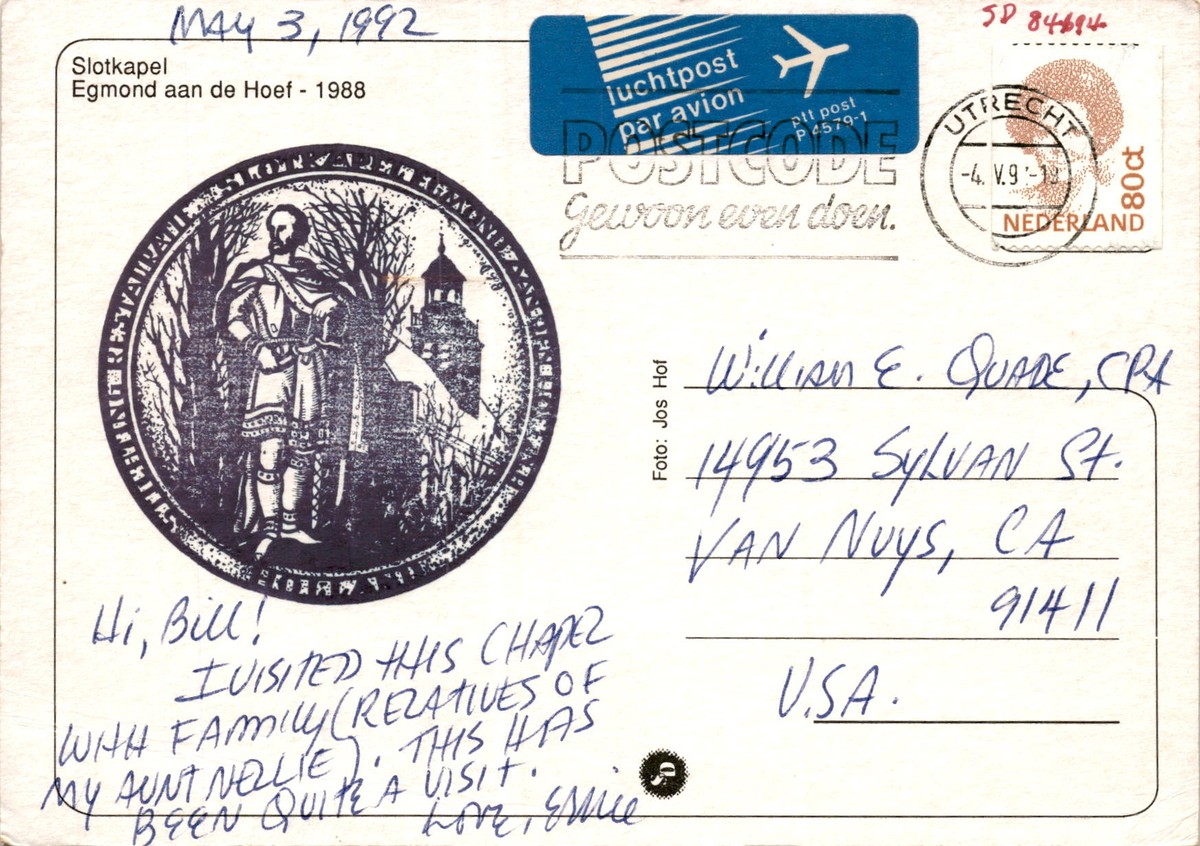 MAY 3, 1992
Slotkapel
Egmond aan de Hoef - 1988
luchtpost
par avion
ptt post
P 4579-1
SD 84694
POSTCODE
Gewoon even doen.
UTRECHT
-4. V.9
80ct
NEDERLAND
Foto: Jos Hof
William E. Quade, CPA
14953 Sylvan St.
Van Nuys, CA
91411
U.S.A.
Hi, Bill!
I VISITED THIS CHAPEL
WITH FAMILY (RELATIVES OF
MY AUNT NELLIE). THIS HAS
BEEN QUITE A VISIT.
LOVE, Ernie
JD